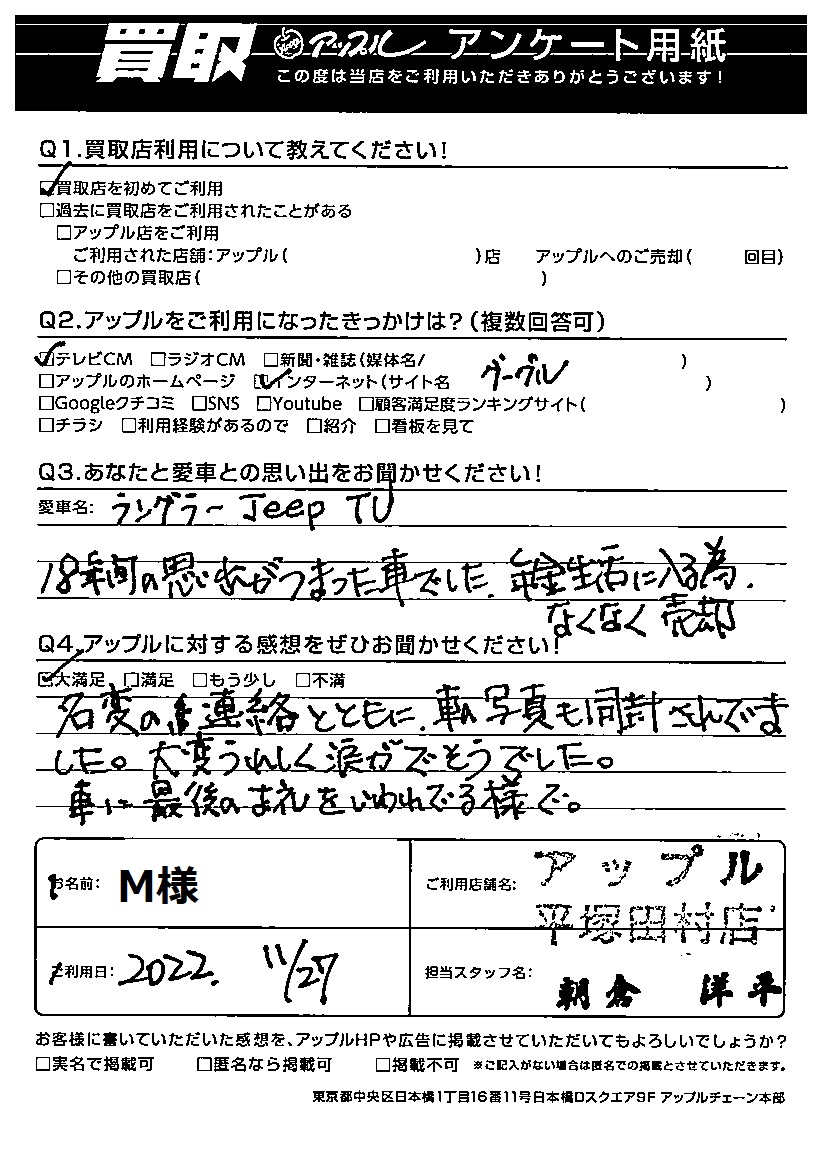 買取 アップル アンケート用紙
この度は当店をご利用いただきありがとうございます!
Q1.買取店利用について教えてください!
☑買取店を初めてご利用
□過去に買取店をご利用されたことがある
□アップル店をご利用
ご利用された店舗:アップル( )店 アップルへのご売却( 回目)
□その他の買取店( )
Q2.アップルをご利用になったきっかけは?(複数回答可)
☑テレビCM □ラジオCM □新聞・雑誌(媒体名/ )
□アップルのホームページ ☑インターネット(サイト名 グーグル )
□Googleクチコミ □SNS □Youtube □顧客満足度ランキングサイト( )
□チラシ □利用経験があるので □紹介 □看板を見て
Q3.あなたと愛車との思い出をお聞かせください!
愛車名: ラングラー Jeep TJ
18年間の思い出がつまった車でした。年金生活に入る為、
なくなく売却
Q4.アップルに対する感想をぜひお聞かせください!
☑大満足 □満足 □もう少し □不満
名変の 連絡とともに、車の写真も同封されてま
した。大変うれしく涙がでそうでした。
車に最後のお礼をいわれてる様で。
お名前: M様
ご利用店舗名: アップル
平塚田村店
ご利用日: 2022. 11/27
担当スタッフ名: 朝倉 洋平
お客様に書いていただいた感想を、アップルHPや広告に掲載させていただいてもよろしいでしょうか?
□実名で掲載可 □匿名なら掲載可 □掲載不可 ※ご記入がない場合は匿名での掲載とさせていただきます。
東京都中央区日本橋1丁目16番11号日本橋Dスクエア9F アップルチェーン本部